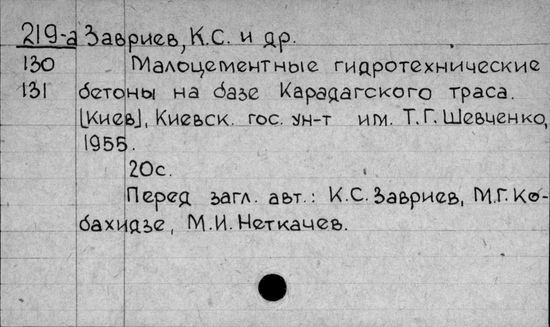 219-а Завриев, К.С. и др.
130 Малоцементные гидротехнические
131 бетоны на базе Карадагского траса.
[Киев], Киевск. гос. ун-т им. Т.Г. Шевченко,
1955.
20с.
Перед загл. авт.: К.С. Завриев, М.Г. Ко-
бахидзе, М.И. Неткачев.